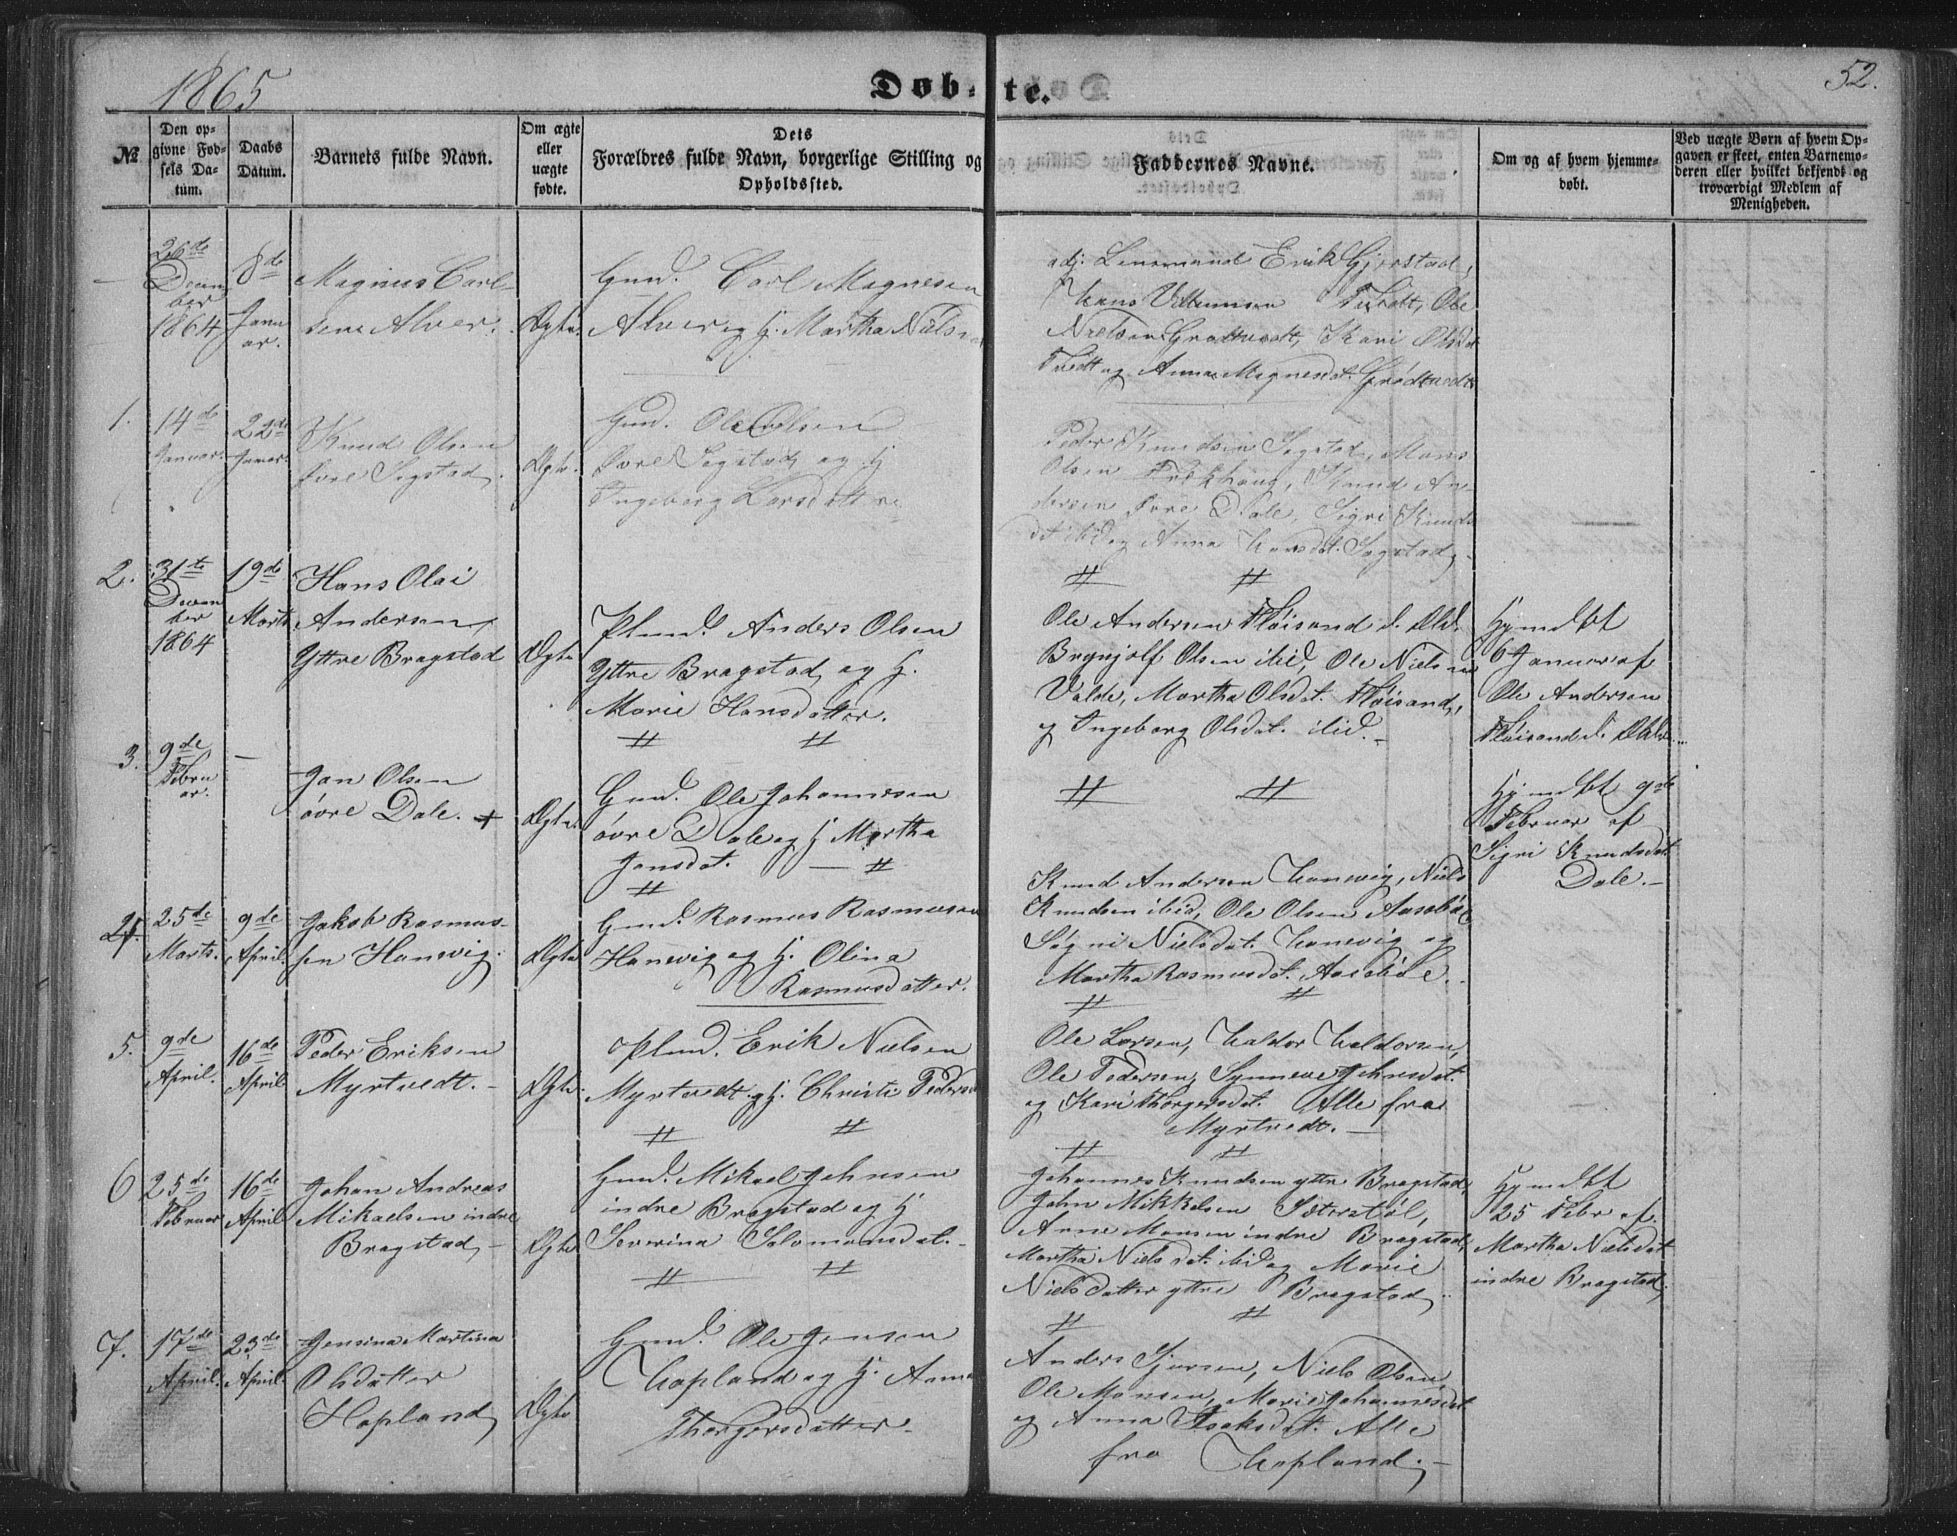 1865
Døbte.
52.
№
Den op-
givne Fød-
sels Da-
tum.
Daabs
Datum.
Barnets fulde Navn.
Om ægte
eller
uægte
fødte.
Dets
Forældres fulde Navn, borgerlige Stilling og
Opholdssted.
Faddernes Navne.
Om og af hvem hjemme-
døbt.
Ved uægte Børn af hvem Op-
gaven er skeet, enten Barnemo-
deren eller hvilket bekjendt og
troværdigt Medlem af
Menigheden.
26de
Decem
ber
1864
8de
Janu
ar.
Magnus Carl
sen Alver.
Ægte.
Gmd. Carl Magnesen
Alver og H. Martha Niels
adj. Lensmand Erik Gjerstad,
Hans Tvedt, Ole
Nielsen Grødtvedt, Kari Olsd
Tvedt og Anna Magnesdt. Grødtvedt
1.
14de
Januar.
22de
Januar.
Knud Olsen
Øvre Sogstad.
Ægte.
Gmd. Ole Olsen
Øvre Sogstad og H
Ingeborg Larsdatter
Peder Knudsen Sogstad, Mons
Olsen Knud An-
dersen Øvre Dale, Sigri Knuds
dt ibid og Anna Hansdt. Sogstad.
2.
31te
Decem
ber
1864
19de
Marts
Hans Olai
Andersen
Yttre Bragstad
Ægte
Plmd. Anders Olsen
Yttre Bragstad og H.
Marie Hansdatter.
Ole Andersen Fløisand d. Æld.
Brynjolf Olsen ibid, Ole Nielsen
Valde, Martha Olsdt. Fløisand,
og Ingeborg Olsdt. ibid.
Hjmdbt
6 Januar af
Ole Andersen
Fløisand d. Æld.
3.
9de
Febru
ar.
—
Jan Olsen
øvre Dale. +
Ægte.
Gmd. Ole Johannesen
øvre Dale og H Martha
Jansdt.
Hjmdbt 9de
Februar af
Sigri Knudsdt.
Dale.
4.
25de
Marts.
9de
April.
Jakob Rasmus-
sen Hanevig.
Ægte
Gmd. Rasmus Rasmusen
Hanevig og H. Olina
Rasmusdatter.
Knud Andersen Hanevig, Niels
Knudsen ibid, Ole Olsen Aasebøe
Sigri Nielsdt. Hanevig og
Martha Rasmusdt. Aasebøe.
5.
9de
April.
16de
April
Peder Eriksen
Myrtvedt.
Ægte.
Oplmd. Erik Nielsen
Myrtvedt og H. Christi Peders
Ole Larsen, Haldor Haldorsen,
Ole Pedersen, Synneve Johnsdt.
og Kari Thorgersdt. Alle fra
Myrtvedt.
6
25de
Februar
16de
April
Johan Andreas
Mikaelsen indre
Bragstad
Ægte
Gmd. Mikael Johnsen
indre Bragstad og H
Severina Salomonsdt.
Johannes Knudsen yttre Bragstad,
John Mikkelsen Sæterstøl,
Anne Monsen indre Bragstad,
Martha Nielsdt. ibid og Marie
Nielsdatter yttre Bragstad.
Hjmdbt
25 Febr af
Martha Nielsdt
indre Bragstad.
7.
17de
April.
23de
April.
Jensina Martina
Olsdatter
Hopland
Ægte
Gmd. Ole Jensen
Hopland og H. Anna
Thorgersdatter.
Anders Niels Olsen,
Ole Monsen, Marie Johannesdt
og Anna Isaksdt. Alle
fra Hopland.